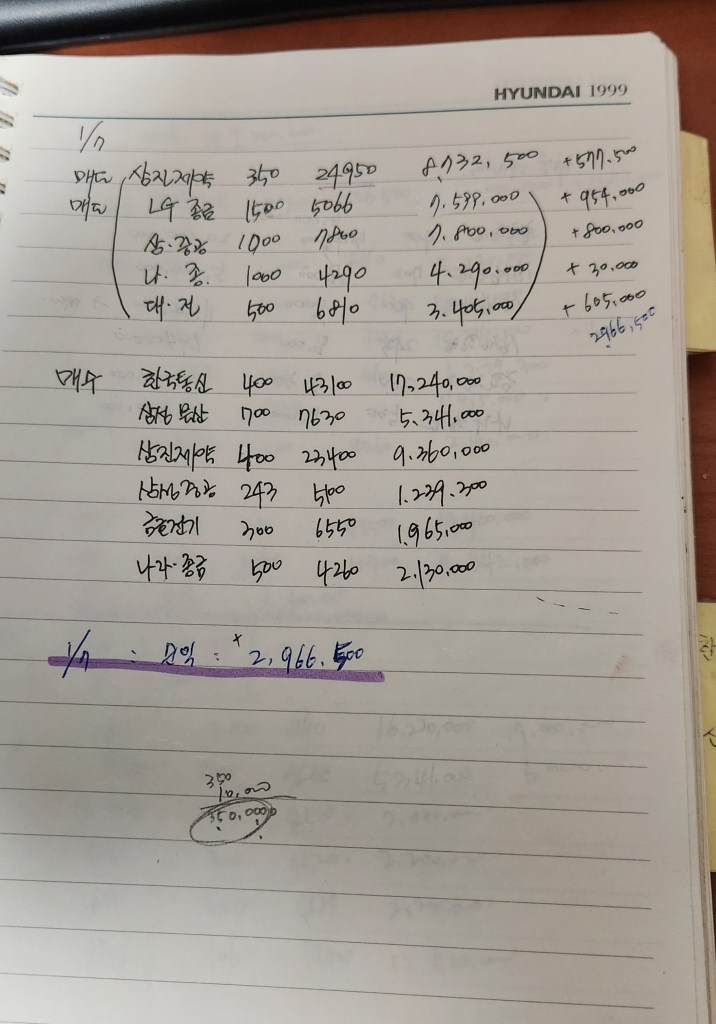 HYUNDAI 1999
1/7
매도 삼진제약 350 24950 8,732,500 +577.500
매도 LG 종금 1500 5066 7.599.000 +954,000
삼·중공 1000 7800 7.800,000 +800,000
나. 종. 1000 4290 4.290.000 +30.000
대·전 500 6810 3.405,000 +605,000
2966,500
매수 한국통신 400 43100 17,240,000
삼성물산 700 7630 5,341,000
삼진제약 400 23400 9.360,000
삼성중공 243 5100 1.239.300
금호전기 300 6550 1,965,000
나라·종금 500 4260 2,130,000
1/7 : 순익 : + 2,966.500
350
10,000
350,0000